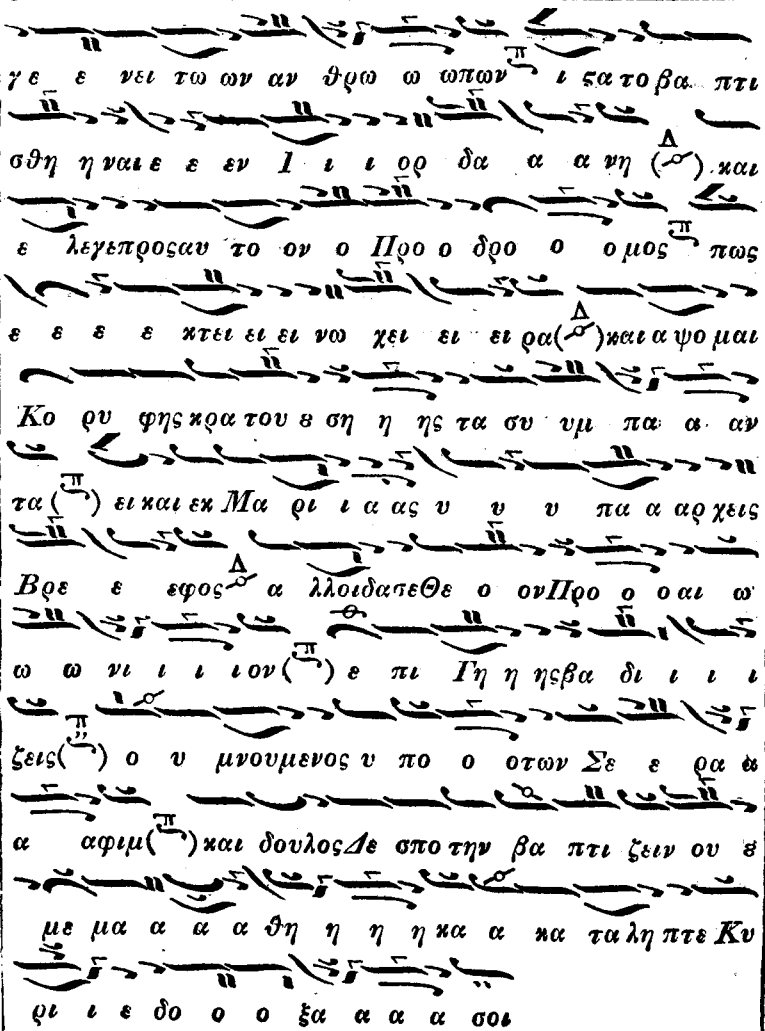 γε ε νει τω ων αν θρω ω ωπων π ι ϛα το βα πτι
σθη η ναι ε ε εν Ι ι ι ορ δα α α νη (Δ) και
ε λεγε προς αυ το ον ο Προ ο δρο ο ο μος π πως
ε ε ε ε κτει ει ει νω χει ει ει ρα (Δ) και α ψο μαι
Κο ρυ φης κρα του ȣ ση η ης τα συ υμ πα α αν
τα (π) ει και εκ Μα ρι ι α ας υ υ υ πα α αρ χεις
Βρε ε εφος Δ α λλ οιδατε Θε ο ον Προ ο ο αι ω
ω ω νι ι ι ι ον (π) ε πι Γη η ης βα δι ι ι ι
ζεις (π) ο υ μνουμενος υ πο ο οτων Σε ε ρα α
α αφιμ (π) και δουλος Δε σπο την βα πτι ζειν ου ȣ
με μα α α α θη η η η κα α κα τα λη πτε Κυ
ρι ι ε δο ο ο ξα α α α σοι